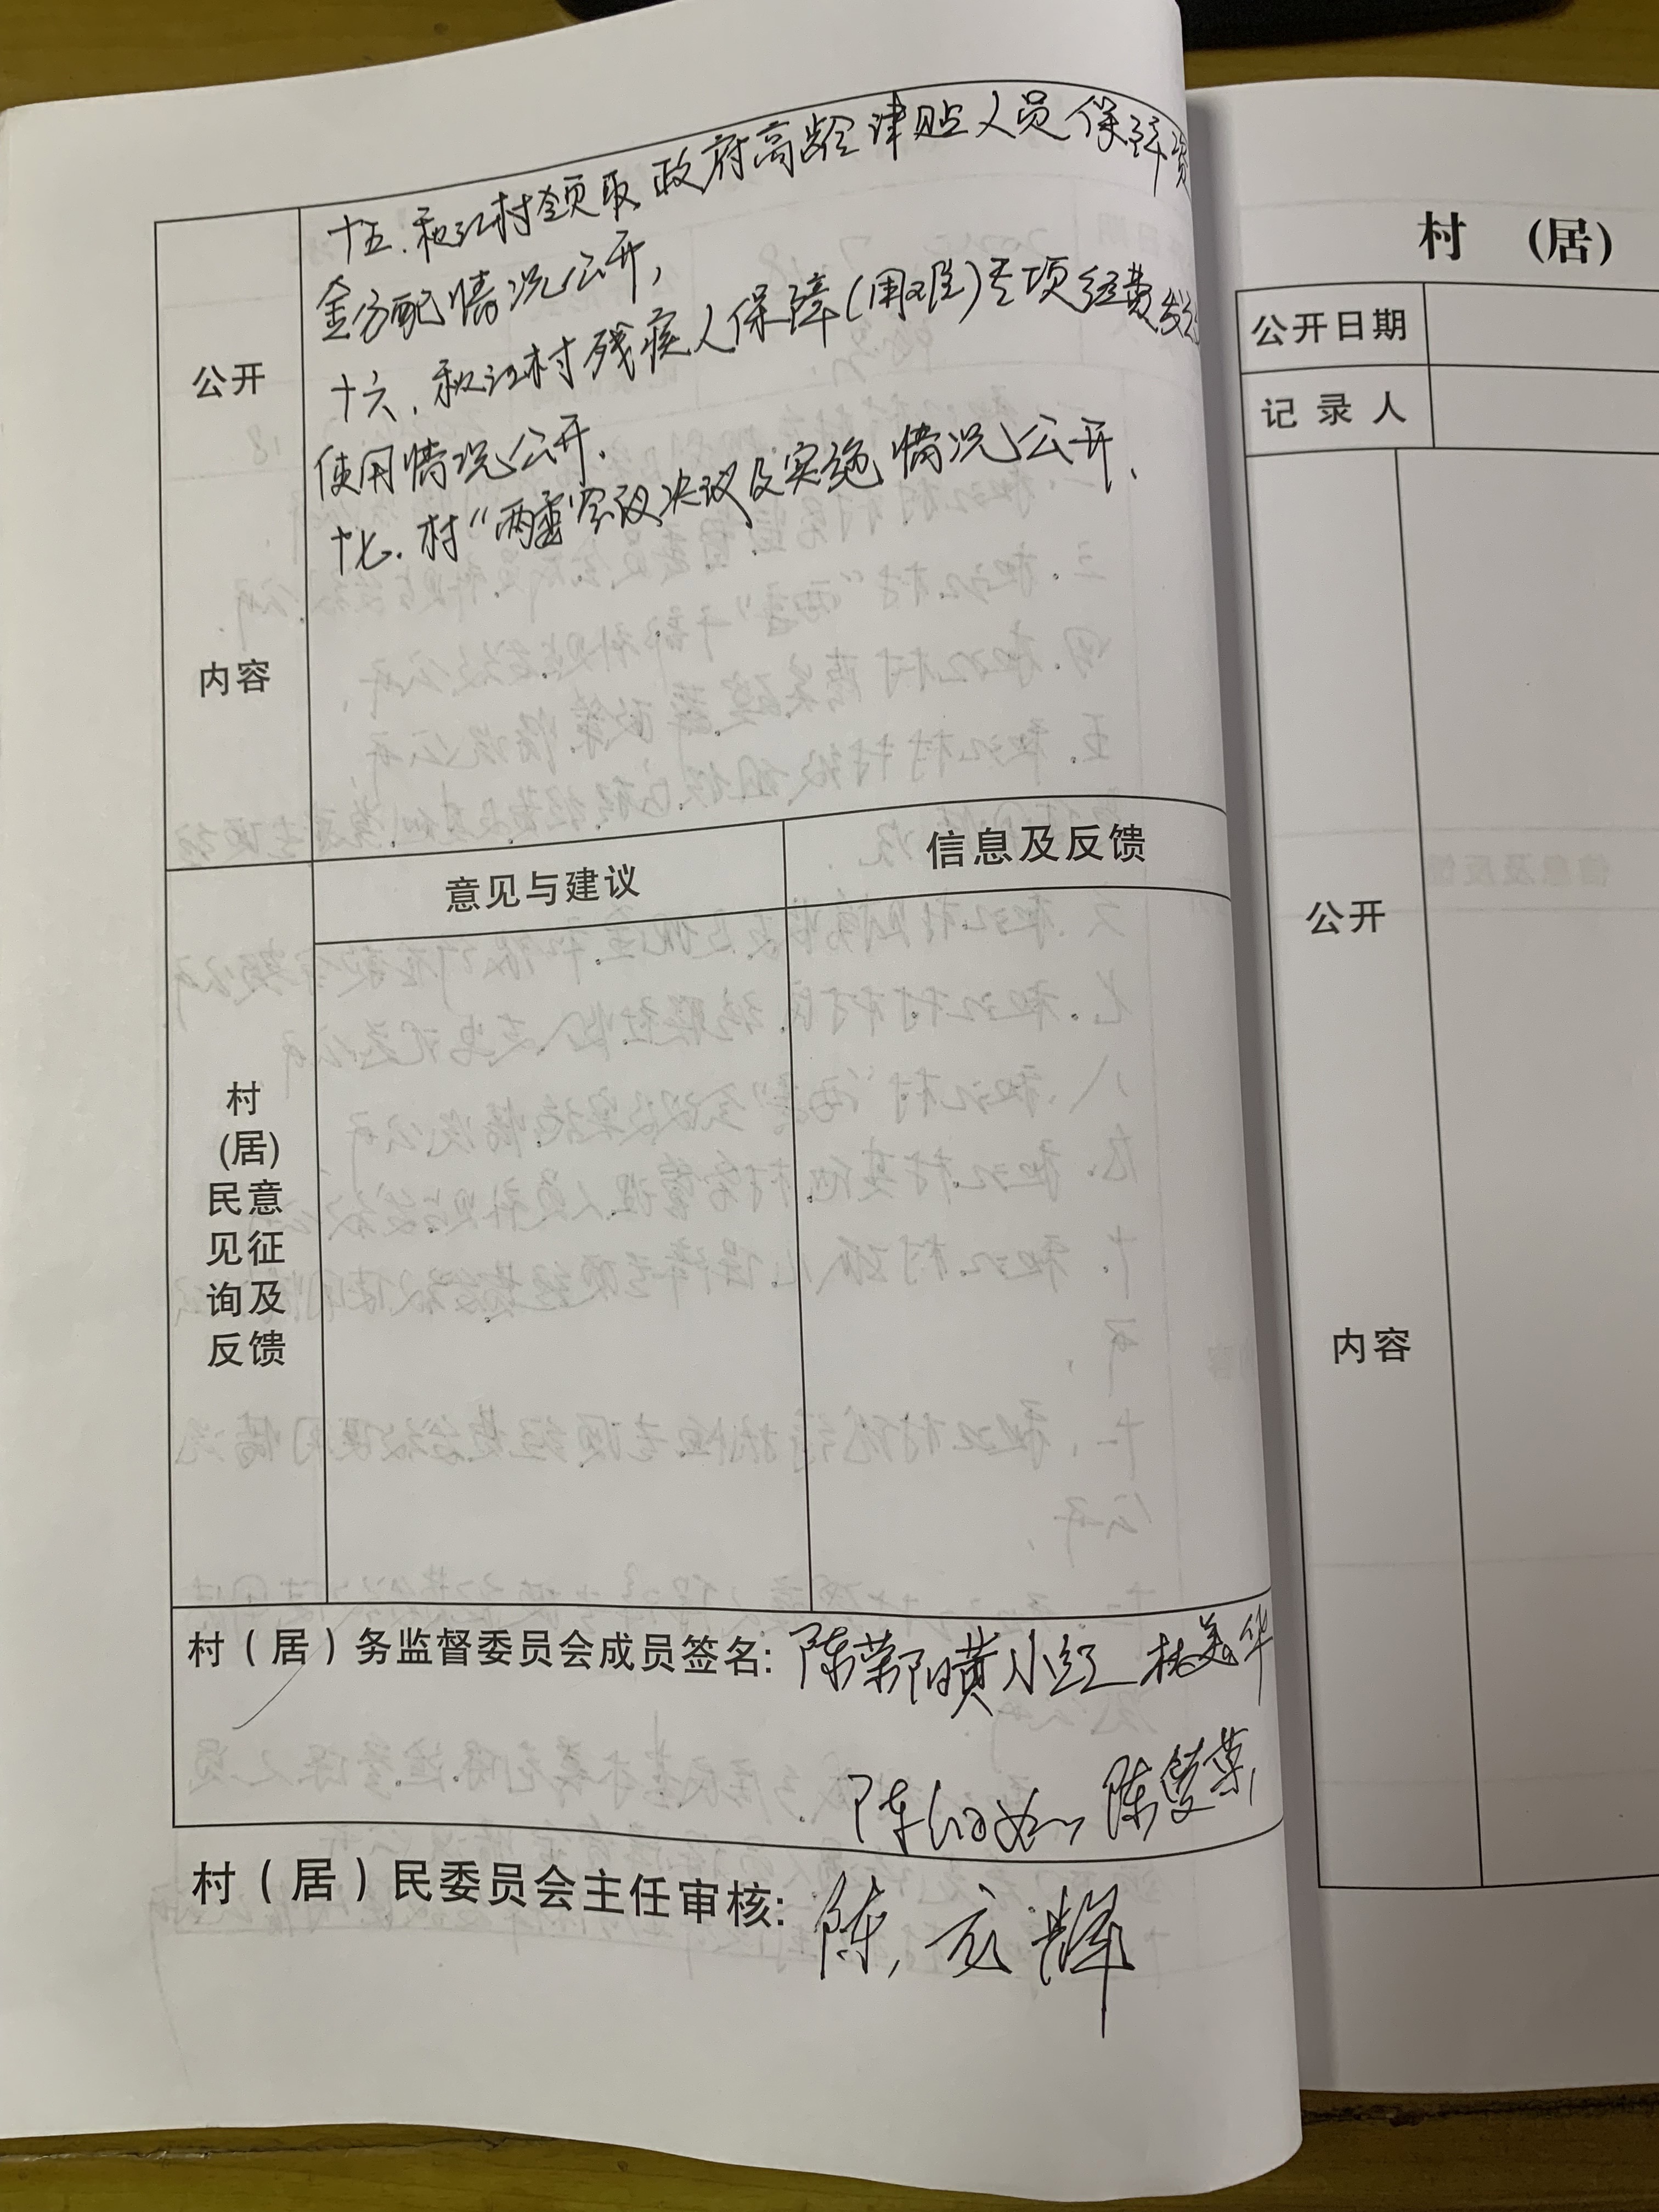 十五.和江村领取政府高龄津贴人员保障资
金分配情况公开,
十六.和江村残疾人保障(困难)专项经费发放
使用情况公开.
十七.村"两委"会议决议及实施情况公开.
公开
内容
意见与建议
信息及反馈
村
(居)
民意
见征
询及
反馈
村(居)务监督委员会成员签名:陈荣 黄小红 林美华
陈 陈雙荣
村(居)民委员会主任审核:陈 辉
村 (居)
公开日期
记录人
公开
内容